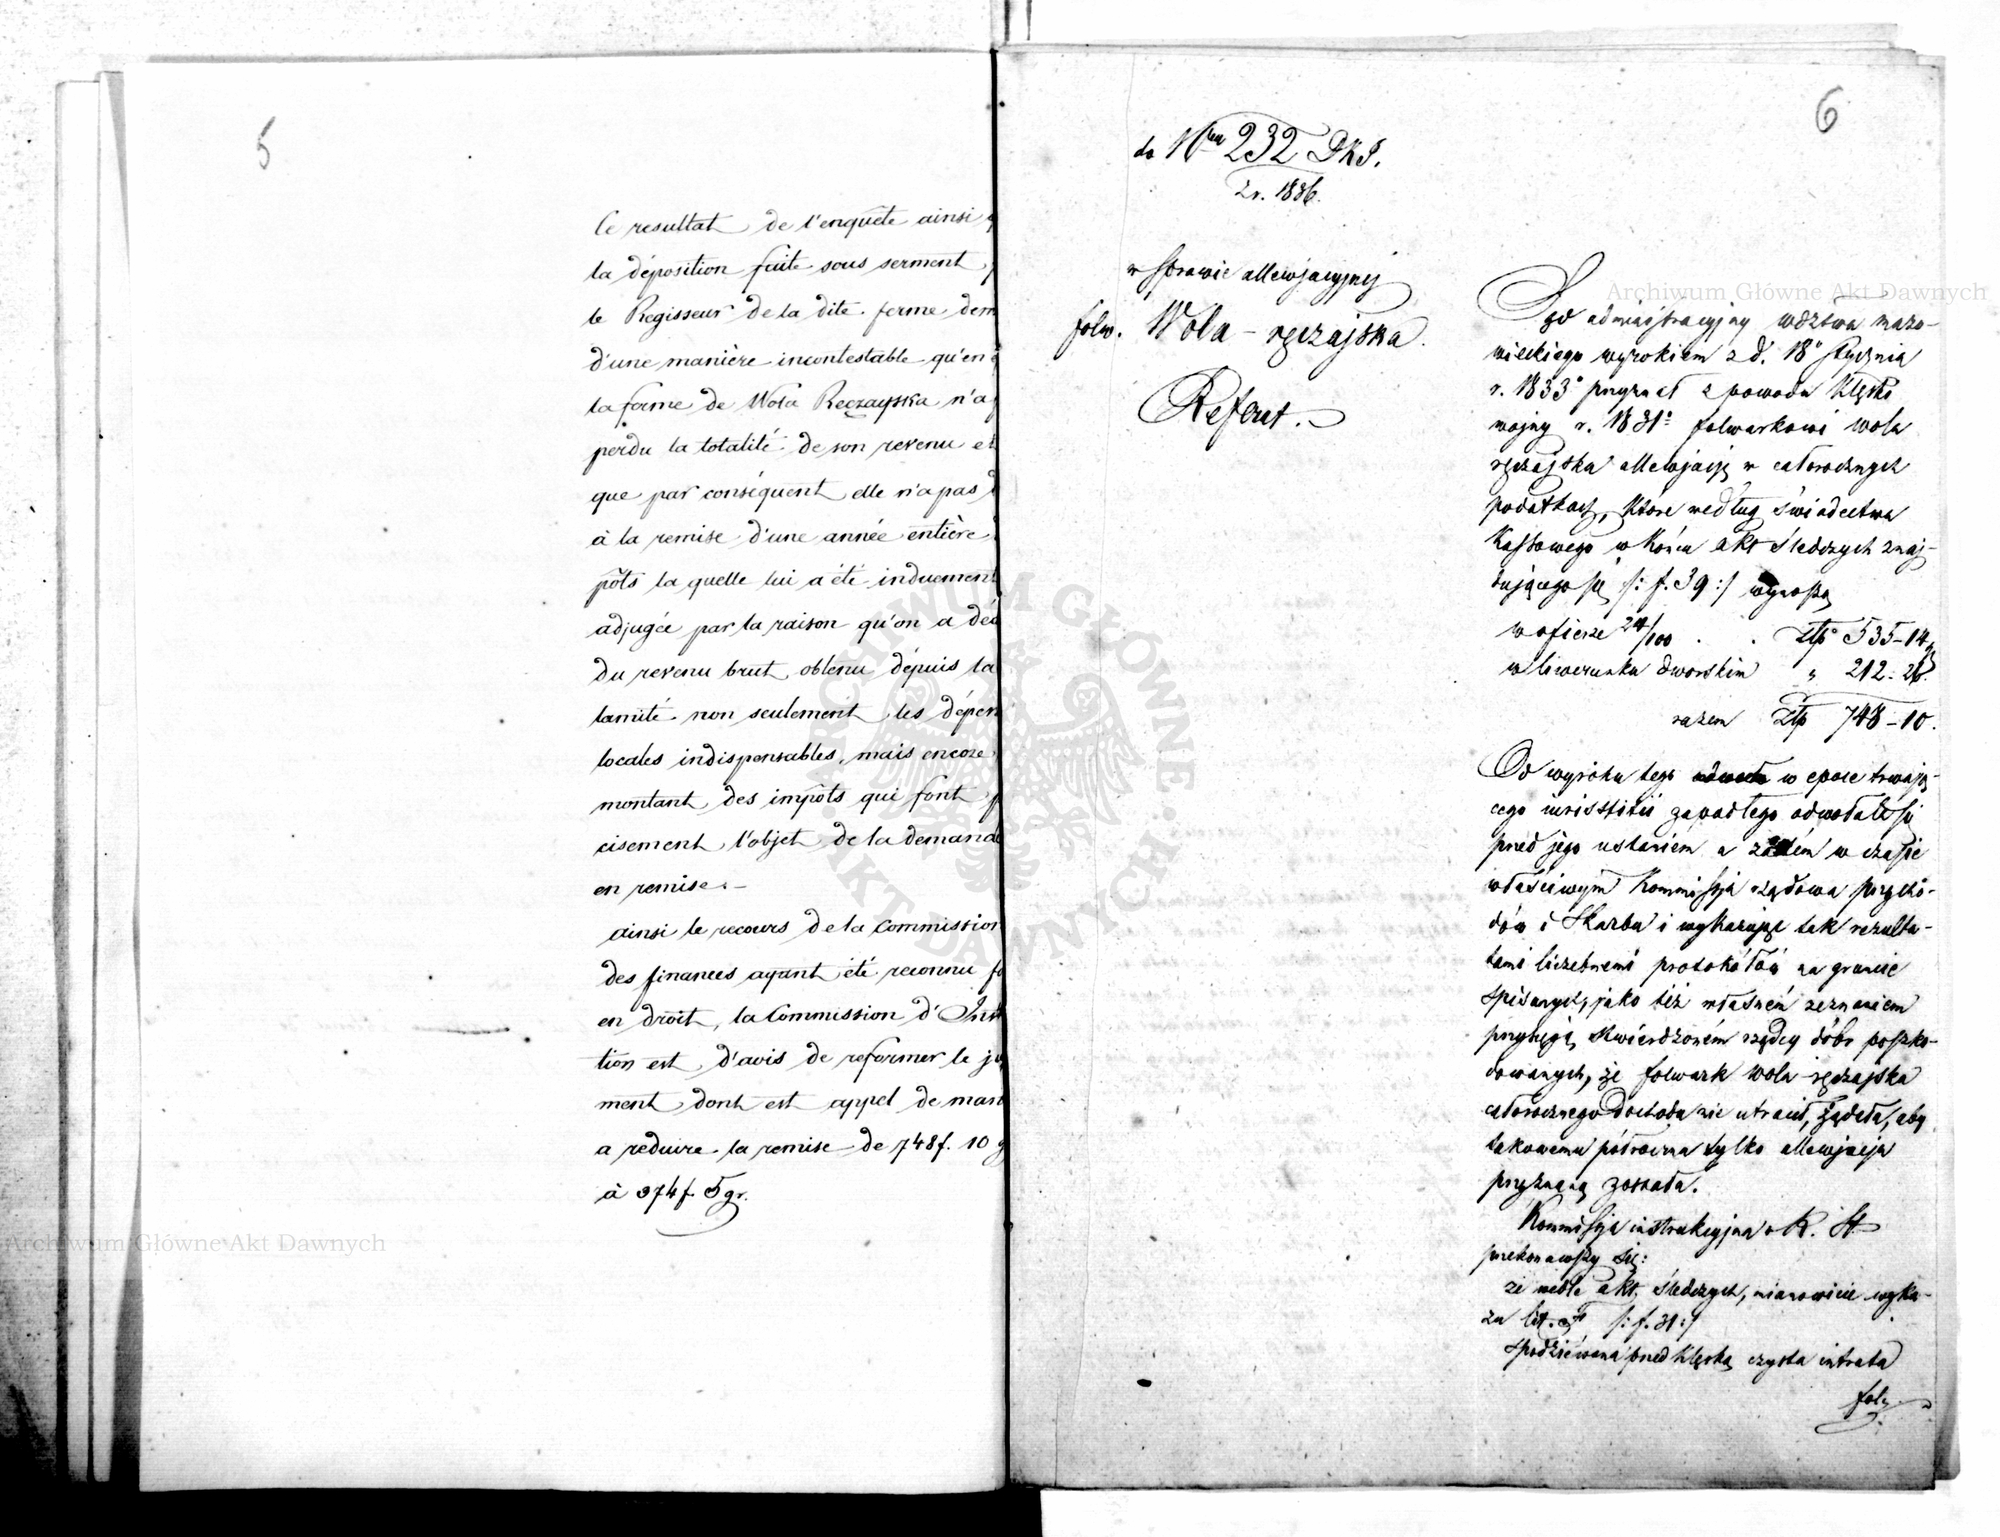 5
Ce resultat de l'enquête ainsi q
la déposition faite sous serment
le Regisseur de la dite ferme dem
d'une manière incontestable qu'en
la ferme de Wola Reczayska n'a
perdu la totalité de son revenu et
que par conséquent elle n'a pas d
à la remise d'une année entière
pôts la quelle lui a été induement
adjugée par la raison qu'on a déd
du revenu brut obtenu dépuis la
lamité non seulement les dépen
locales indispensables, mais encore
montant des impôts qui font p
cisement l'objet de la demande
en remise. –
ainsi le recours de la Commission
des finances ayant été reconnu fo
en droit, la Commission d'Inst
tion est d'avis de reformer le ju
ment dont est appel de man
a reduire la remise de 748 f. 10 g
à 374 f. 5 gr.
6
do Nru 232 DKS.
z r. 1836.
w sprawie allewjacyjnej
folw. Wola – ręczajska.
Referat.
Sąd administracyjny wdztwa mazo-
wieckiego wyrokiem z d. 18° Stycznia
r. 1833° przyznał z powodu klęski
wojny r. 1831° folwarkowi wola
ręczajska allewjacją w całorocznych
podatkach, które według świadectwa
Kassowego w końcu akt śledczych znaj-
dującego się /: f. 39 :/ wynoszą
w ofierze 24/100 . . Złp 535–14
w liwerunku dworskim " 212: 26.
razem Złp 748–10.
Od wyroku tego w epoce trwają-
cego iurisstitii zapadłego odwołała się
przed jego ustaniem a zatém w czasie
właściwym Kommissja rządowa przycho-
dów i Skarbu i wykazując tak rezulta-
tami liczebnemi protokółów na gruncie
spisanych, jako też własném zeznaniem
przysięgą stwierdzoném rządcy dóbr poszko-
dowanych, że folwark wola ręczajska
całorocznego dochodu nie utracił, żądała, aby
takowemu półroczna tylko allewjacja
przyznaną została.
Kommissja instrukcyjna R. St.
przekonawszy się:
że wedle akt śledczych, mianowicie wyka-
zu lit. F /: f. 31 :/
spodziéwana przed klęską czysta intrata
folw.
Archiwum Główne Akt Dawnych
Archiwum Główne Akt Dawnych
ARCHIWUM GŁÓWNE AKT DAWNYCH